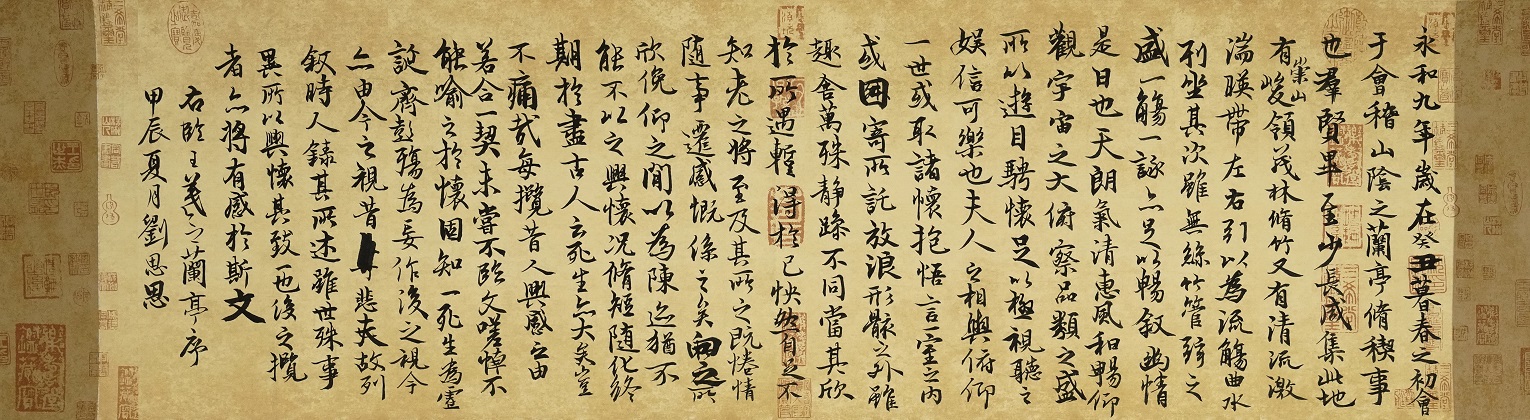 永和九年歲在癸丑暮春之初會
于會稽山陰之蘭亭脩稧事
也羣賢畢至少長咸集此地
有崇山峻領茂林脩竹又有清流激
湍暎帶左右引以為流觴曲水
列坐其次雖無絲竹管弦之
盛一觴一詠亦足以暢叙幽情
是日也天朗氣清惠風和暢仰
觀宇宙之大俯察品類之盛
所以遊目騁懷足以極視聽之
娛信可樂也夫人之相與俯仰
一世或取諸懷抱悟言一室之內
或因寄所託放浪形骸之外雖
趣舍萬殊靜躁不同當其欣
於所遇蹔得於己怏然自足不
知老之將至及其所之既惓情
隨事遷感慨係之矣向之所
欣俛仰之閒以為陳迹猶不
能不以之興懷況脩短隨化終
期於盡古人云死生亦大矣豈
不痛哉每攬昔人興感之由
若合一契未嘗不臨文嗟悼不
能喻之於懷固知一死生為虛
誕齊彭殤為妄作後之視今
亦由今之視昔悲夫故列
叙時人錄其所述雖世殊事
異所以興懷其致一也後之攬
者亦將有感於斯文
右臨王羲之蘭亭序
甲辰夏月劉思思